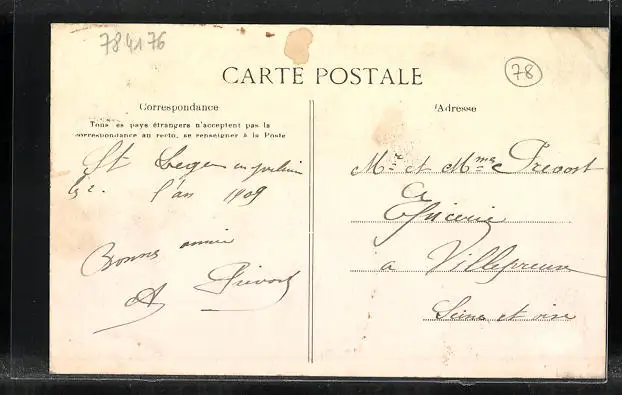 784176
78
CARTE POSTALE
Correspondance
Tous les pays étrangers n'acceptent pas la
correspondance au recto, se renseigner à la Poste
St Leger en yvelines
le 2. l'an 1909
Bonne année
A Prevost
Adresse
Mr et Mme Prevost
Epicerie
a Villepreux
Seine et oise